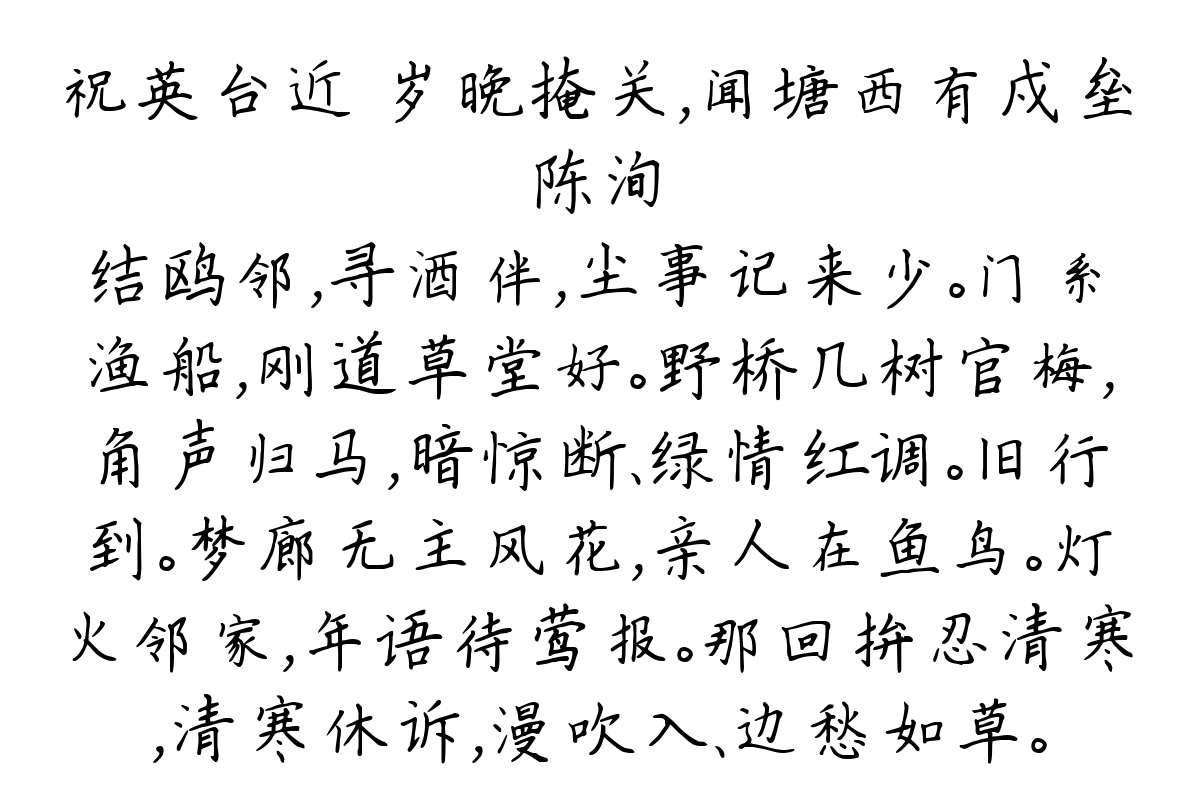 祝英台近 岁晚掩关,闻塘西有戍垒
陈洵
结鸥邻,寻酒伴,尘事记来少。门系
渔船,刚道草堂好。野桥几树官梅,
角声归马,暗惊断、绿情红调。旧行
到。梦廊无主风花,亲人在鱼鸟。灯
火邻家,年语待莺报。那回拚忍清寒
,清寒休诉,漫吹入、边愁如草。